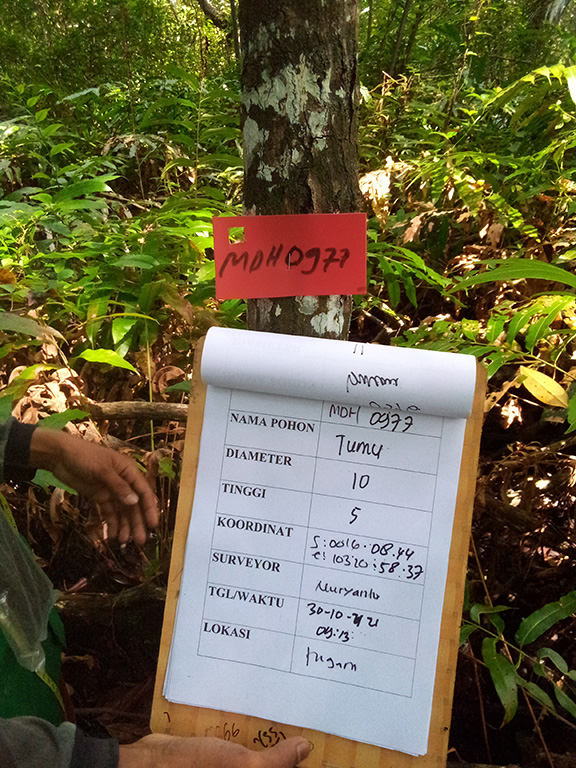 MDH 0977
MDH 0977
NAMA POHON Tumu
DIAMETER 10
TINGGI 5
KOORDINAT S: 0016.08.44
E: 10320:58.37
SURVEYOR Nuryanto
TGL/WAKTU 30-10-2021
09:13
LOKASI